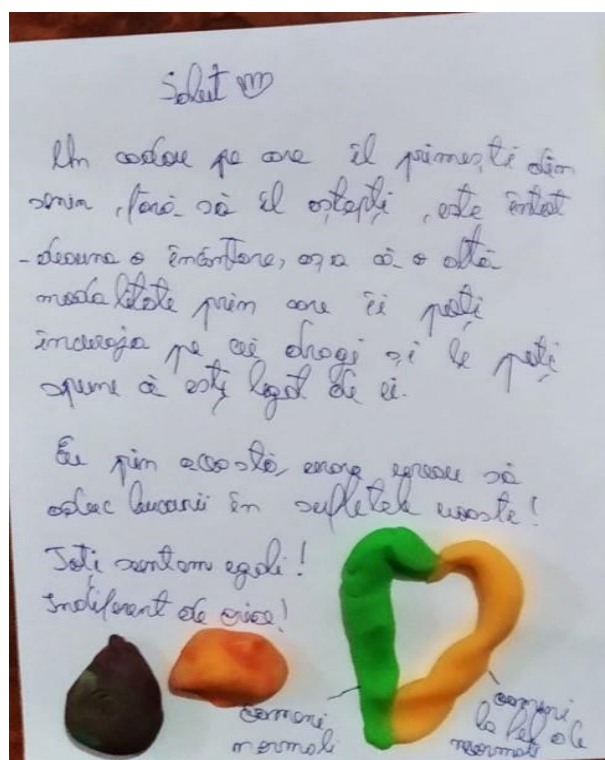 Salut
Un cadou pe care îl primești din
senin, fără să îl aștepți, este întot
-deauna o încântare, așa că o altă
modalitate prin care îi poți
încuraja pe cei dragi și le poți
spune că ești legat de ei.
Eu prin această, vreau să
aduc bucurii în sufletele voaste!
Toți suntem egali!
Indiferent de orice!
oameni
normali
oameni
la fel de
normali